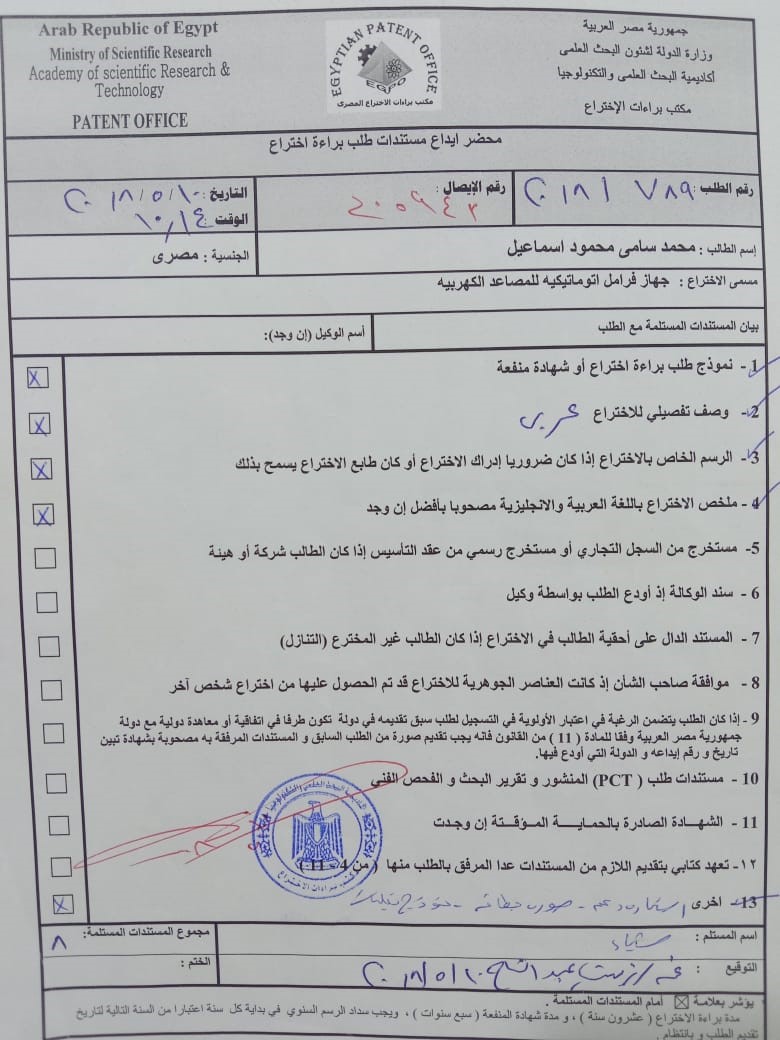 Arab Republic of Egypt
Ministry of Scientific Research
Academy of scientific Research &
Technology
PATENT OFFICE
EGYPTIAN PATENT OFFICE
EGPO
مكتب براءات الاختراع المصرى
جمهورية مصر العربية
وزارة الدولة لشئون البحث العلمى
أكاديمية البحث العلمى والتكنولوجيا
مكتب براءات الإختراع
محضر ايداع مستندات طلب براءة اختراع
رقم الطلب : ٧٨٩ / ٢٠١٨
رقم الإيصال :
التاريخ : ٢٠١٨/٥/١٠
الوقت : ١٠,١٤
إسم الطالب : محمد سامى محمود اسماعيل
الجنسية : مصرى
مسمى الاختراع : جهاز فرامل اتوماتيكيه للمصاعد الكهربيه
بيان المستندات المستلمة مع الطلب
أسم الوكيل (إن وجد):
1- نموذج طلب براءة اختراع أو شهادة منفعة X
2- وصف تفصيلي للاختراع عربى X
3- الرسم الخاص بالاختراع إذا كان ضروريا إدراك الاختراع أو كان طابع الاختراع يسمح بذلك X
4 - ملخص الاختراع باللغة العربية والانجليزية مصحوبا بأفضل إن وجد X
5- مستخرج من السجل التجاري أو مستخرج رسمي من عقد التأسيس إذا كان الطالب شركة أو هيئة
6 - سند الوكالة إذ أودع الطلب بواسطة وكيل
7 - المستند الدال على أحقية الطالب في الاختراع إذا كان الطالب غير المخترع (التنازل)
8 - موافقة صاحب الشأن إذ كانت العناصر الجوهرية للاختراع قد تم الحصول عليها من اختراع شخص آخر
9 - إذا كان الطلب يتضمن الرغبة في اعتبار الأولوية في التسجيل لطلب سبق تقديمه في دولة تكون طرفا في اتفاقية أو معاهدة دولية مع دولة
جمهورية مصر العربية وفقا للمادة ( 11 ) من القانون فانه يجب تقديم صورة من الطلب السابق و المستندات المرفقة به مصحوبة بشهادة تبين
تاريخ و رقم إيداعه و الدولة التي أودع فيها.
10 - مستندات طلب ( PCT ) المنشور و تقرير البحث و الفحص الفني
11 - الشهادة الصادرة بالحماية المؤقتة إن وجدت
١٢- تعهد كتابي بتقديم اللازم من المستندات عدا المرفق بالطلب منها ( من 4 - 11 )
13- اخرى X
اسم المستلم :
مجموع المستندات المستلمة: ٨
التوقيع : ٢٠١٨/٥/١٠
الختم :
يؤشر بعلامة ☒ أمام المستندات المستلمة .
مدة براءة الاختراع ( عشرون سنة ) ، و مدة شهادة المنفعة ( سبع سنوات ) ، ويجب سداد الرسم السنوي في بداية كل سنة اعتبارا من السنة التالية لتاريخ
تقديم الطلب و بانتظام